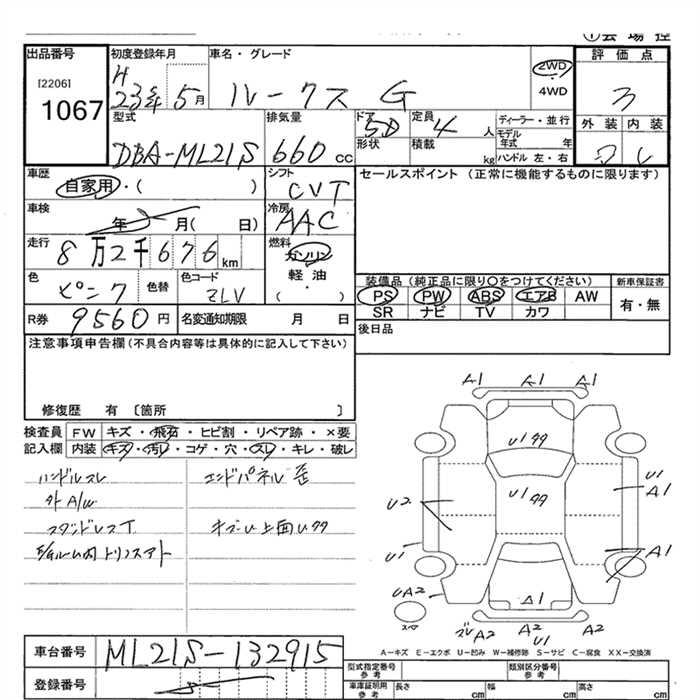 ①会場控
出品番号
[2206]
1067
初度登録年月
H
23年 5月
車名・グレード
ルークス G
2WD
4WD
評価点
3
外装 内装
型式
DBA-ML21S
排気量
660 cc
ドア
5D
形状
定員
4 人
積載
kg
ディーラー・並行
モデル
年式 年
ハンドル 左・右
車歴
自家用・( )
シフト
CVT
セールスポイント(正常に機能するものに限ります)
車検
年 月( 日)
冷房
AAC
走行
8万2千676km
燃料
ガソリン
軽油
( )
色
ピンク
色替
色コード
ZLV
装備品(純正品に限り〇をつけてください)
新車保証書
PS PW ABS エアB AW
SR ナビ TV カワ
有・無
R券
9560円
名変通知期限 月 日
後日品
注意事項申告欄(不具合内容等は具体的に記入して下さい)
修復歴 有 〔箇所 〕
検査員
記入欄
FW キズ・飛石・ヒビ割・リペア跡・×要
内装 キズ・汚レ・コゲ・穴・スレ・キレ・破レ
ハンドルスレ
外A/W
スタッドレスT
エンドパネル歪
キズU上面Uタタ
A1 A1 A1
U1タタ
U1タタ
U2
U1
U1
A1
A1
UA2
A2
A2
U1
A2
△1
A-キズ E-エクボ U-凹み W-補修跡 S-サビ C-腐食 XX-交換済
車台番号
ML21S-132915
登録番号
型式指定番号
参考
類別区分番号
参考
車庫証明用
参考
長さ cm
幅 cm
高さ cm